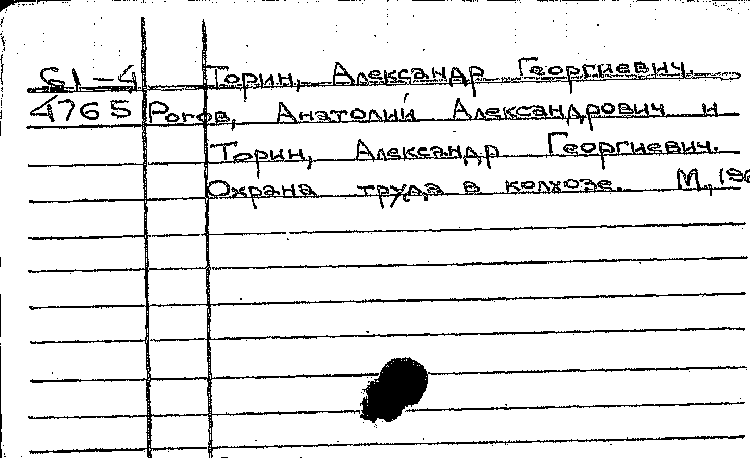 61-4 Торин, Александр Георгиевич.
4765 Рогов, Анатолий Александрович и
Торин, Александр Георгиевич.
Охрана труда в колхозе. М.,